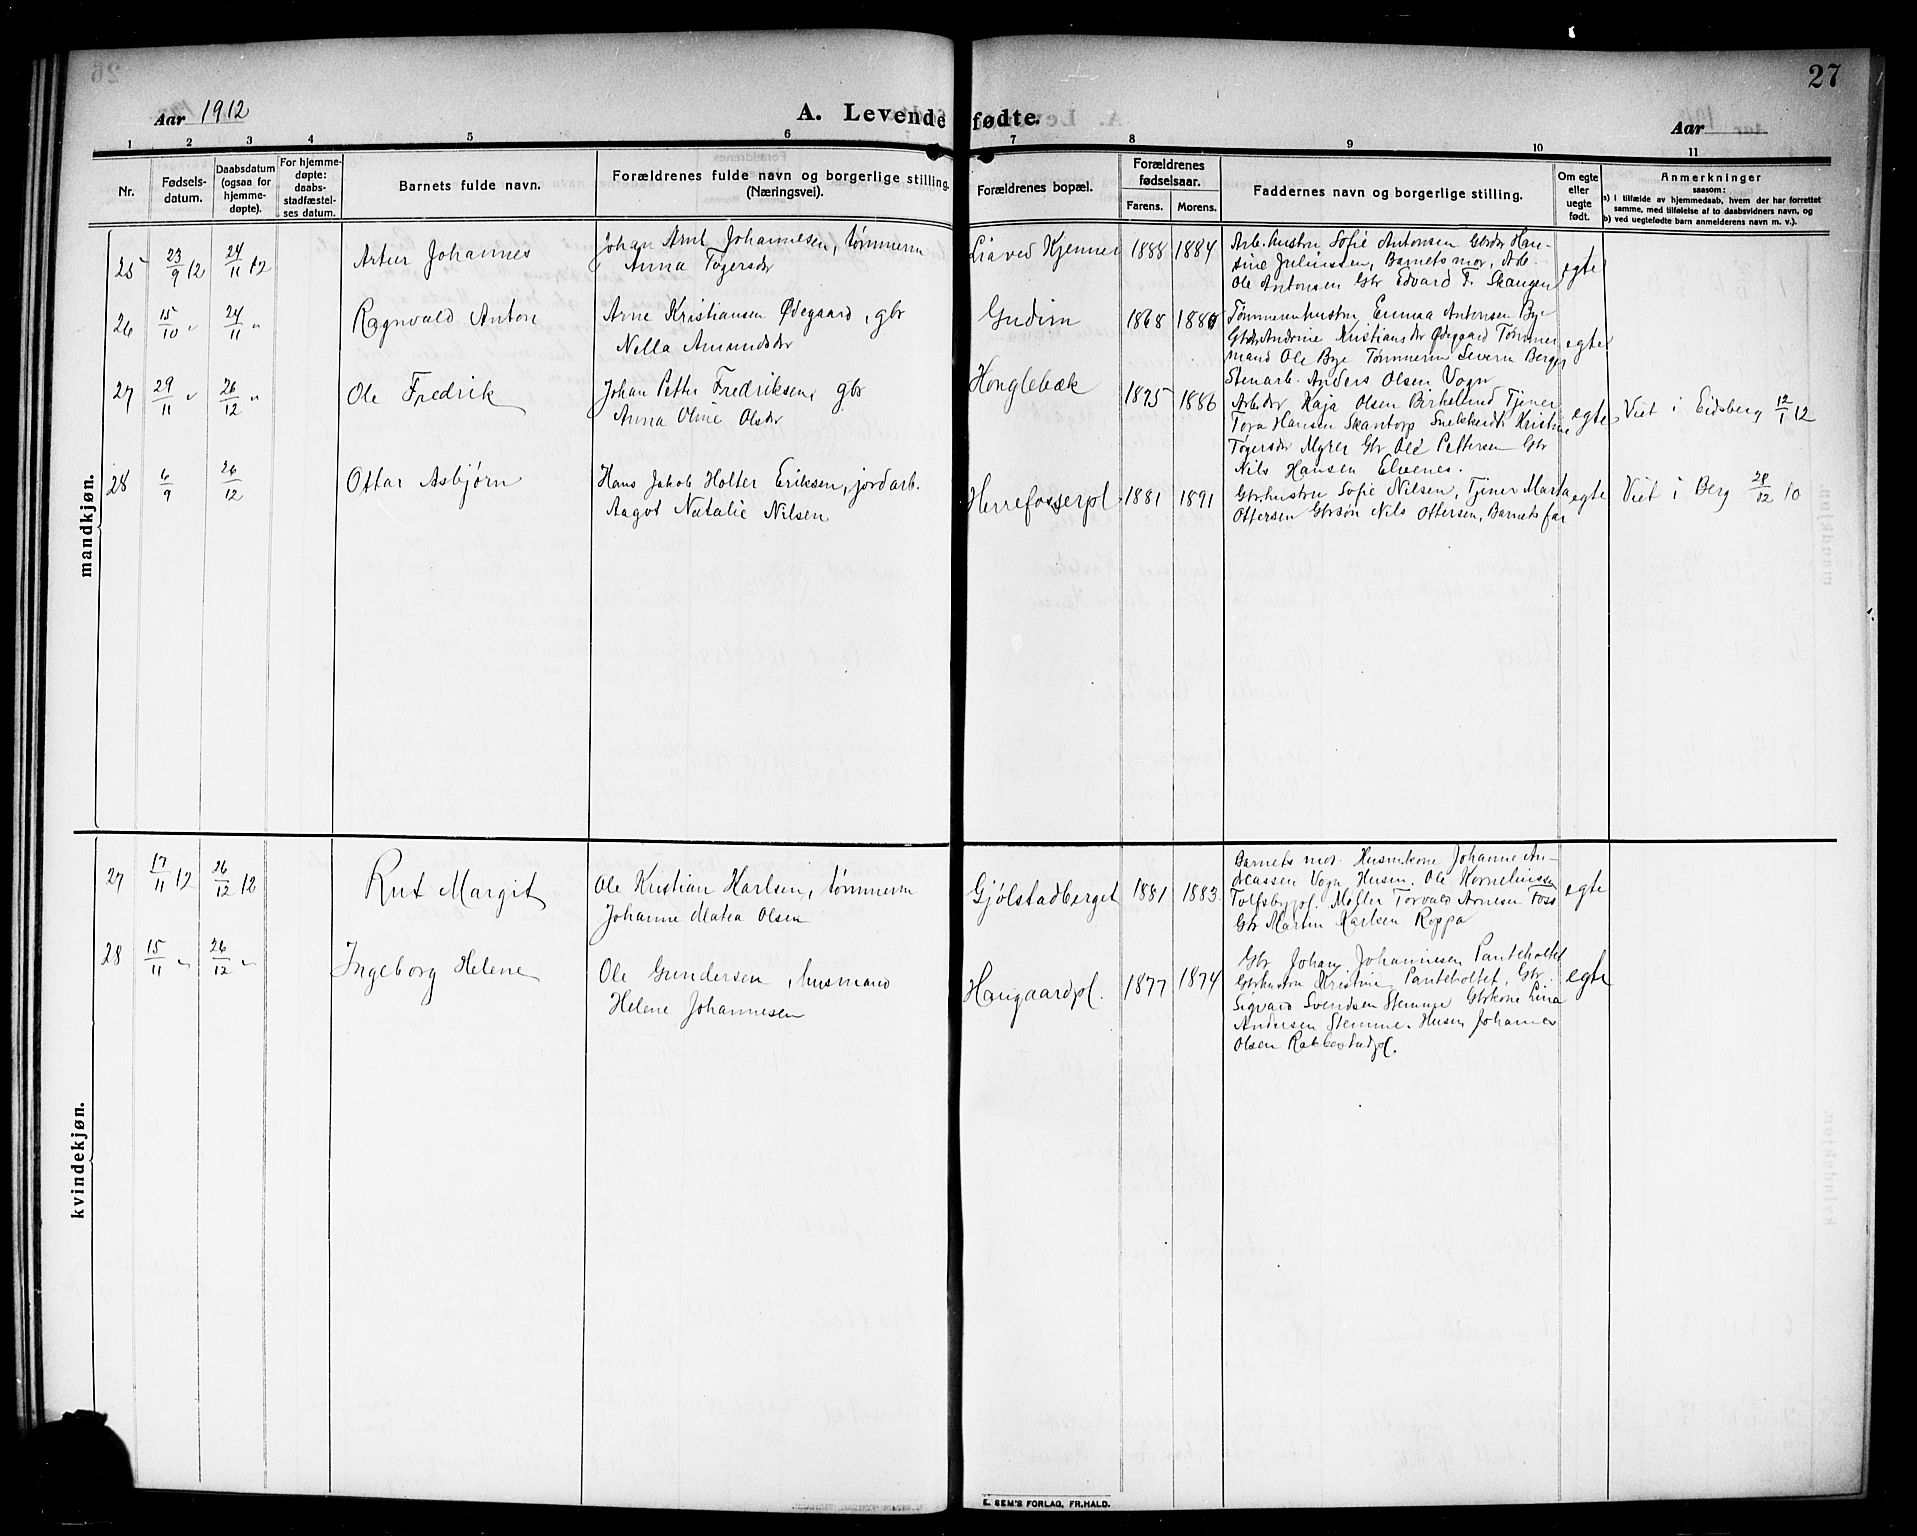 27
Aar 1912
A. Levende fødte.
Aar
1 2 3 4 5 6 7 8 9 10 11
Nr.
Fødsels-
datum.
Daabsdatum
(ogsaa for
hjemme-
døpte).
For hjemme-
døpte:
daabs-
stadfæstel-
ses datum.
Barnets fulde navn.
Forældrenes fulde navn og borgerlige stilling.
(Næringsvei).
Forældrenes bopæl.
Forældrenes
fødselsaar.
Farens. Morens.
Faddernes navn og borgerlige stilling.
Om egte
eller
uegte
født.
Anmerkninger
saasom:
a) i tilfælde av hjemmedaab, hvem der har forrettet
samme, med tilføielse av to daabsvidners navn, og
b) ved uegtefødte barn anmelderens navn m. v.).
mandkjøn.
25 23/9 12 24/11 12 Artur Johannes
Johan Arnt Johannesen, tømmerm
Anna Tøgersdr
Lia ved Kjenner 1888 1884
Arb.hustru Sofie Antonsen Gbrdr Han-
sine Juliussen, Barnets mor, Arb.
Ole Antonsen Gbr Edvard F. Skaugen
egte
26 15/10 " 24/11 " Ragnvald Anton
Arne Kristiansen Ødegaard, gbr
Nella Amundsdr
Gudim 1868 1880
Tømmermhustru Emma Antonsen Bye
Gbrdr Andrine Kristiansdr Ødegaard Tømmer
mand Ole Bye Tømmerm Severin Berger
Stenarb. Anders Olsen Vogn
egte
27 29/11 " 26/12 " Ole Fredrik
Johan Petter Fredriksen, gbr
Anna Oline Olsdr
Honglebæk 1875 1886
Arbdr Kaja Olsen Birkelund Tjener
Tora Hansen Skantorp Snekkerdr Kristine
Tøgersdr Myrer Gbr Ole Pettersen Gbr
Nils Hansen Elvenes.
egte Viet i Eidsberg 12/1 12
28 6/9 26/12 Ottar Asbjørn
Hans Jakob Holter Eriksen, jordarb.
Aagot Natalie Nilsen
Herrefosserpl 1881 1891
Gbrhustru Sofie Nilsen, Tjener Marta
Ottersen Gbrsøn Nils Ottersen, Barnets far
egte Viet i Berg 28/12 10
kvindekjøn.
27 17/11 12 26/12 12 Rut Margit
Ole Kristian Karlsen, tømmerm
Johanne Matea Olsen
Gjølstadberget 1881 1883
Barnets mor. Husmkone Johanne An-
dreassen Vogn Husm. Ole Korneliussen
Tolfsbypl. Møller Torvald Arnesen Foss
Gbr Martin Karlsen Roppa
egte
28 15/11 " 26/12 " Ingeborg Helene
Ole Gundersen, husmand
Helene Johannesen
Haugaardpl. 1877 1874
Gbr Johan Johannesen Panteholtet
Gbrhustru Kristine Panteholtet, Gbr.
Sigvard Svendsen Stemme Gbrkone Lina
Andersen Stemme. Husm Johannes
Olsen Rakkestadpl.
egte
E. SEM'S FORLAG, FR.HALD.